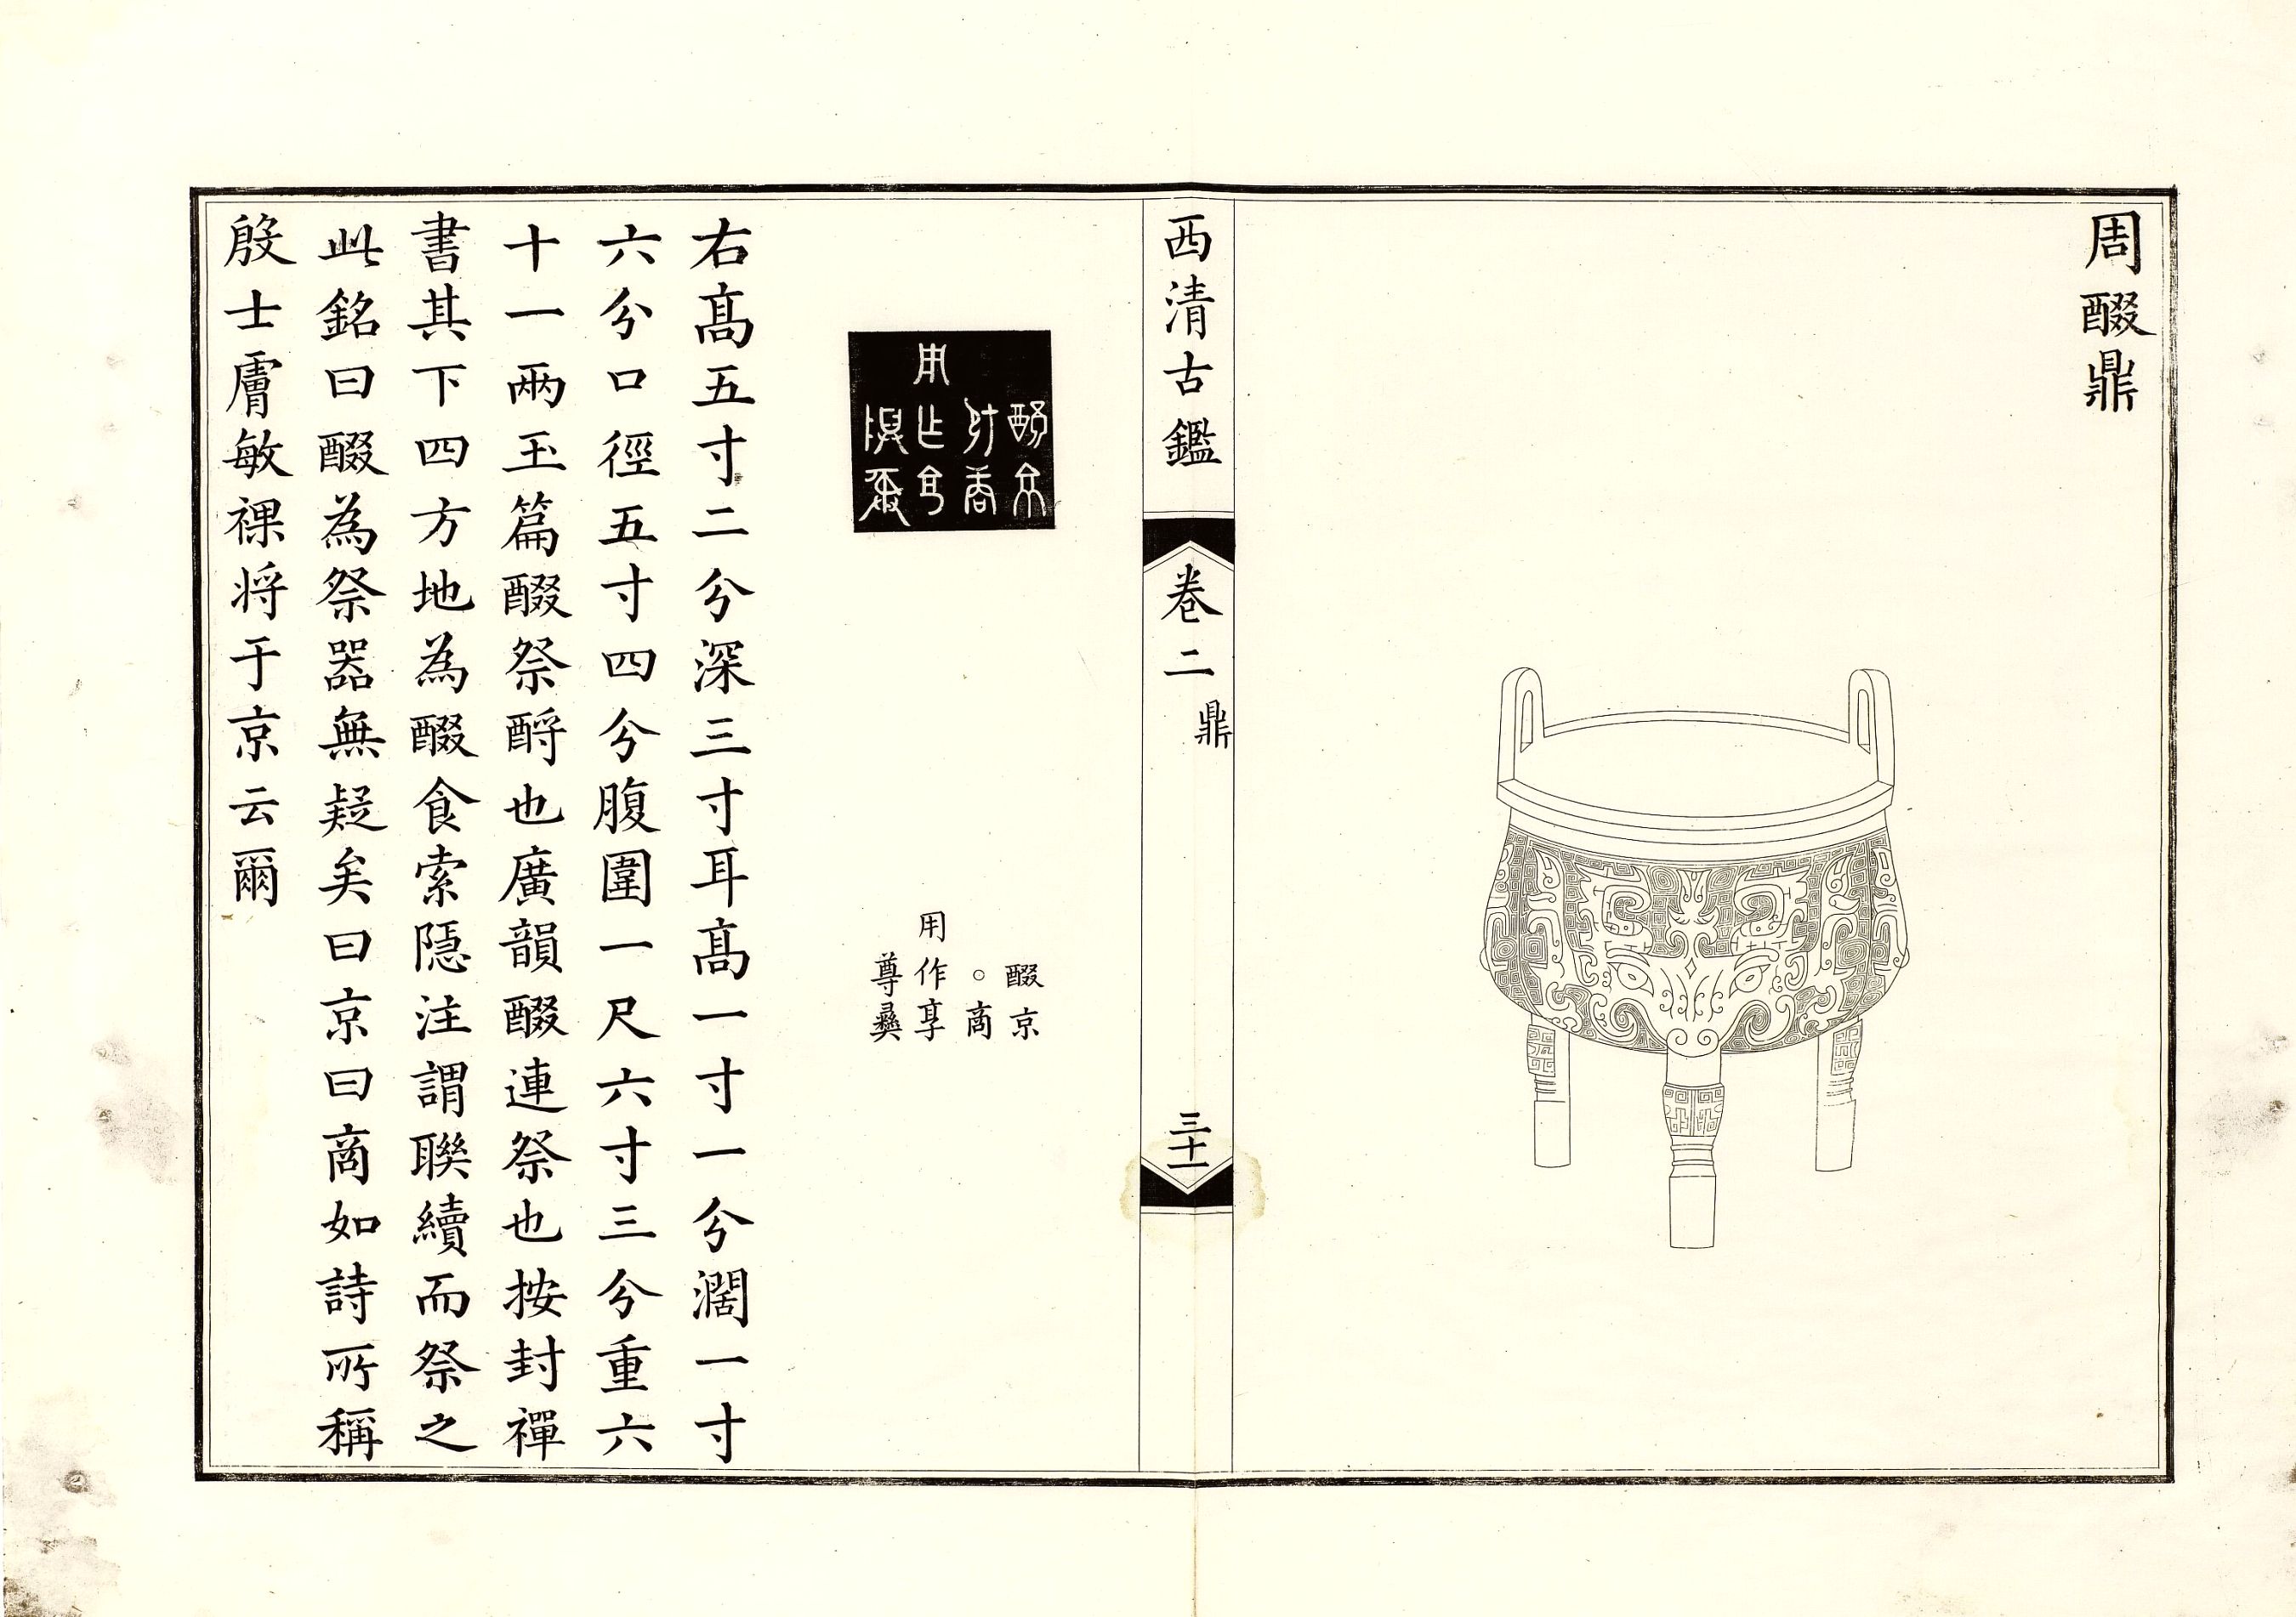 周醊鼎
西清古鑑
卷二
鼎
三十一
醊京
○商
用作享
尊彝
右髙五寸二分深三寸耳髙一寸一分濶一寸
六分口徑五寸四分腹圍一尺六寸三分重六
十一兩玉篇醊祭酹也廣韻醊連祭也按封禪
書其下四方地為醊食索隱注謂聨續而祭之
此銘曰醊為祭器無疑矣曰京曰商如詩所稱
殷士膚敏祼将于京云爾